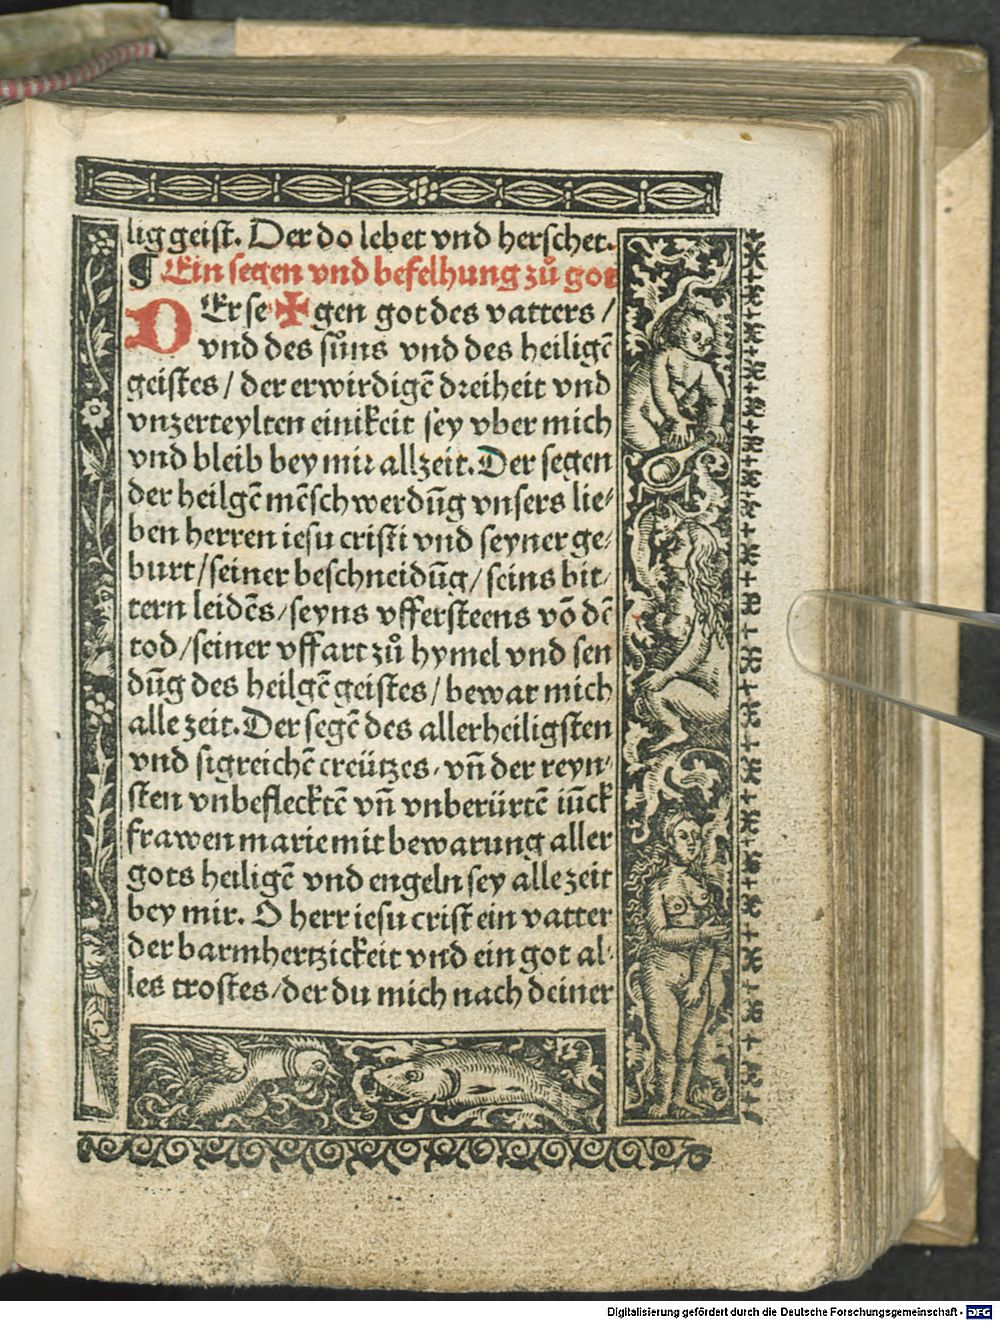 lig geist. Der do lebet vnd herschet.
¶ Ein segen vnd befelhung zů got
DEr se✠gen got des vatters /
vnd des sůns vnd des heiligē
geistes / der erwirdigē dreiheit vnd
vnzerteylten einikeit sey vber mich
vnd bleib bey mir allzeit. Der segen
der heilgē mēschwerdūg vnsers lie-
ben herren iesu cristi vnd seyner ge-
burt / seiner beschneidūg / seins bit-
tern leidēs / seyns vffersteens vō dē
tod / seiner vffart zů hymel vnd sen
dūg des heilgē geistes / bewar mich
alle zeit. Der segē des allerheiligsten
vnd sigreichē creützes, vn̄ der reyn-
sten vnbeflecktē vn̄ vnberürtē iūck
frawen marie mit bewarung aller
gots heiligē vnd engeln sey alle zeit
bey mir. O herr iesu crist ein vatter
der barmhertzickeit vnd ein got al-
les trostes / der du mich nach deiner
Digitalisierung gefördert durch die Deutsche Forschungsgemeinschaft - DFG